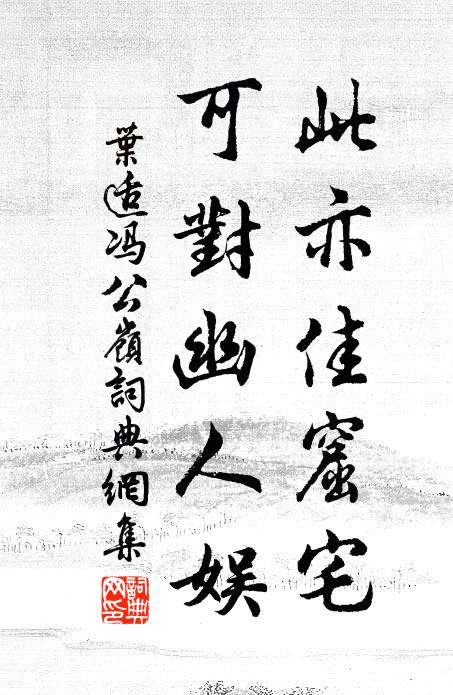 此亦佳窟宅
可對幽人娛
葉適馮公嶺詞典網集
詞典网印